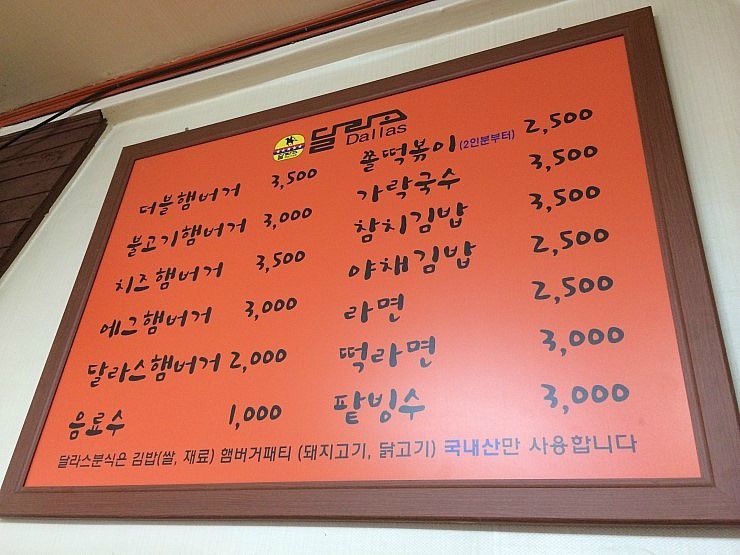 달라스
Dallas
더블햄버거 3,500
불고기햄버거 3,000
치즈햄버거 3,500
에그햄버거 3,000
달라스햄버거 2,000
음료수 1,000
쫄떡볶이(2인분부터) 2,500
가락국수 3,500
참치김밥 3,500
야채김밥 2,500
라면 2,500
떡라면 3,000
팥빙수 3,000
달라스분식은 김밥(쌀, 재료) 햄버거패티 (돼지고기, 닭고기) 국내산만 사용합니다